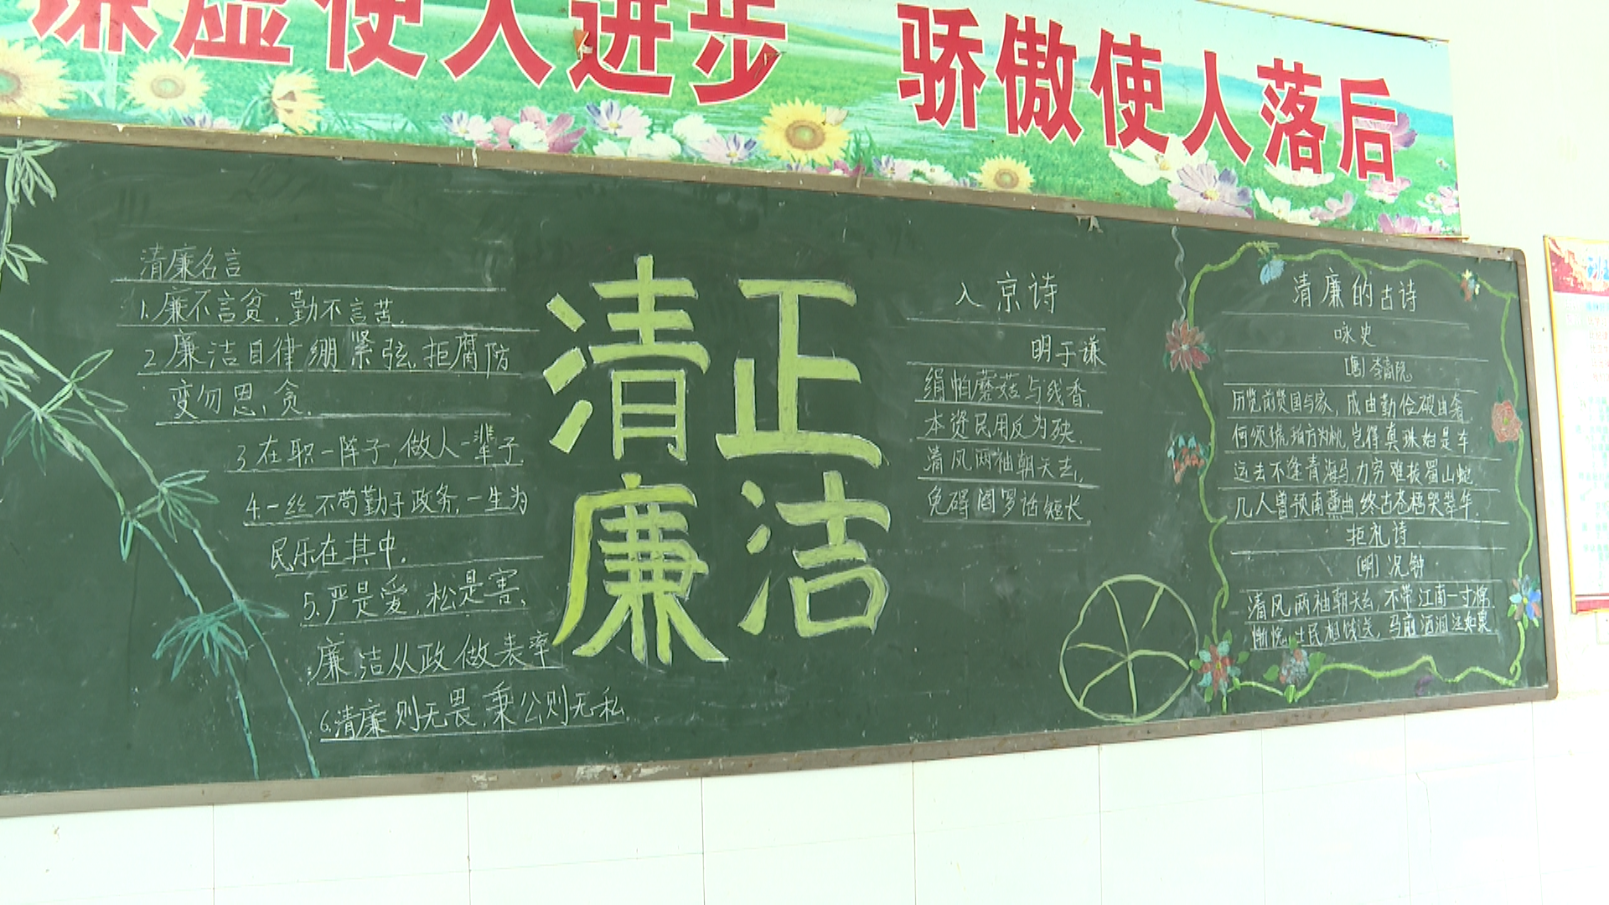 谦虚使人进步 骄傲使人落后
清廉名言
1.廉不言贫,勤不言苦.
2.廉洁自律绷紧弦,拒腐防
变勿恩、贪.
3.在职一阵子,做人一辈子
4.一丝不苟勤于政务,一生为
民乐在其中.
5.严是爱,松是害,
廉洁从政做表率
6.清廉则无畏,秉公则无私
清正
廉洁
入京诗
明于谦
绢帕蘑菇与线香,
本资民用反为殃.
清风两袖朝天去,
免碍阎罗话短长
清廉的古诗
咏史
[唐]李商隐
历览前贤国与家,成由勤俭破由奢
何须琥珀方为枕,岂得真珠始是车
远去不逢青海马,力穷难拔蜀山蛇
几人曾预南薰曲,终古苍梧哭翠华.
拒礼诗
[明]况钟
清风两袖朝天去,不带江南一寸棉
惭愧士民相饯送,马前洒泪注如泉